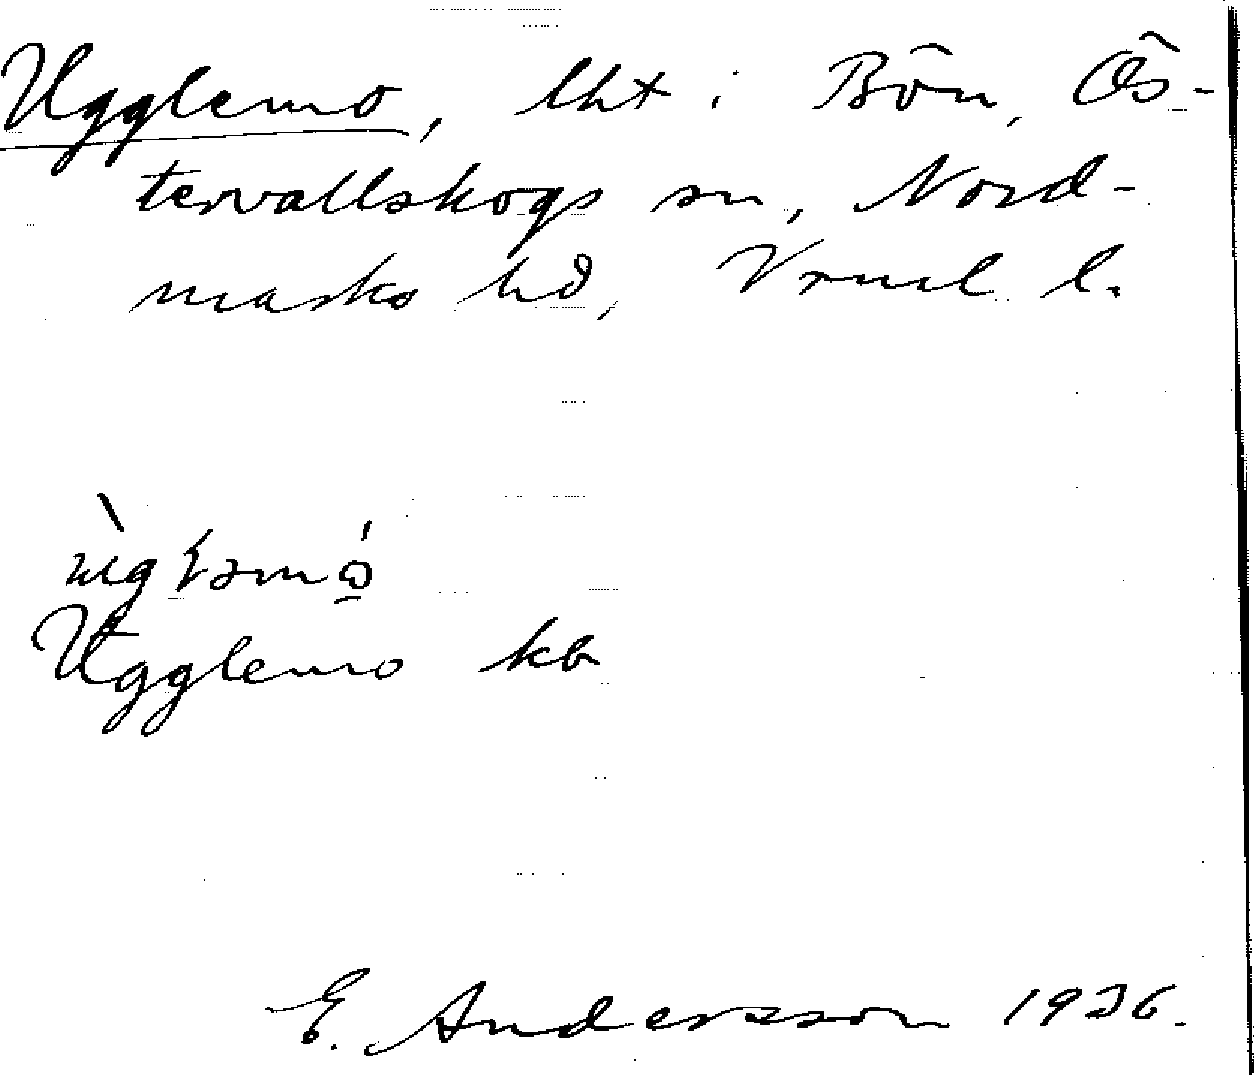 Ugglemo, lht i Bön, Ös-
tervallskogs sn, Nord-
marks hd, Vrml l.
Ugglemo kb
E. Andersson 1936.